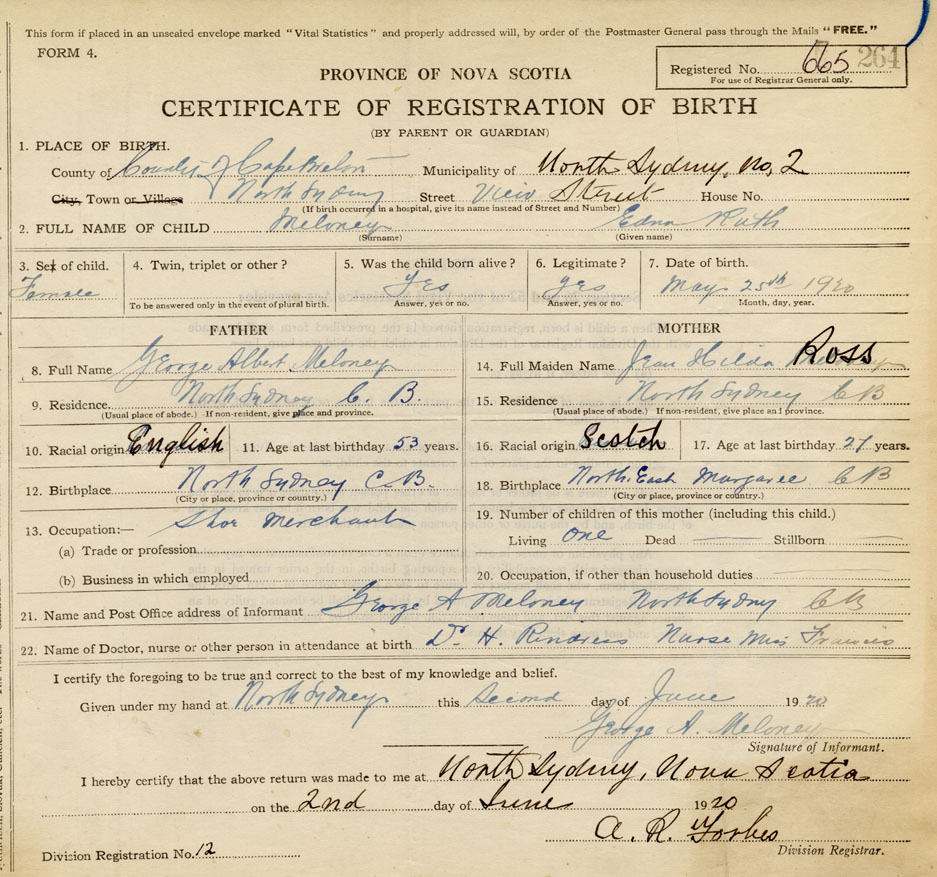 This form if placed in an unsealed envelope marked "Vital Statistics" and properly addressed will, by order of the Postmaster General pass through the Mails "FREE."
FORM 4.
Registered No. 665 264
For use of Registrar General only.
PROVINCE OF NOVA SCOTIA
CERTIFICATE OF REGISTRATION OF BIRTH
(BY PARENT OR GUARDIAN)
1. PLACE OF BIRTH.
County of County of Cape Breton Municipality of North Sydney, No, 2
City, Town or Village North Sydney Street View Street House No.
(If birth occurred in a hospital, give its name instead of Street and Number)
2. FULL NAME OF CHILD Meloney Edna Ruth
(Surname) (Given name)
3. Sex of child. 4. Twin, triplet or other? 5. Was the child born alive? 6. Legitimate? 7. Date of birth.
Female Yes yes May 25th 1920
To be answered only in the event of plural birth. Answer, yes or no. Answer, yes or no. Month, day, year.
FATHER MOTHER
8. Full Name George Albert Meloney 14. Full Maiden Name Jean Hilda Ross
9. Residence. North Sydney C. B. 15. Residence North Sydney C B
(Usual place of abode.) If non-resident, give place and province. (Usual place of abode.) If non-resident, give place and province.
10. Racial origin English 11. Age at last birthday 53 years. 16. Racial origin Scotch 17. Age at last birthday 27 years.
12. Birthplace North Sydney C.B. 18. Birthplace North East Margaree C B
(City or place, province or country.) (City or place, province or country.)
13. Occupation:— Shoe Merchant 19. Number of children of this mother (including this child.)
(a) Trade or profession Living one Dead Stillborn
(b) Business in which employed 20. Occupation, if other than household duties
21. Name and Post Office address of Informant George A Meloney North Sydney C B
22. Name of Doctor, nurse or other person in attendance at birth Dr H. Rindress Nurse Miss Francis
I certify the foregoing to be true and correct to the best of my knowledge and belief.
Given under my hand at North Sydney this Second day of June 1920
George A. Meloney
Signature of Informant.
I hereby certify that the above return was made to me at North Sydney, Nova Scotia
on the 2nd day of June 1920
A. R. Forbes
Division Registrar.
Division Registration No. 12